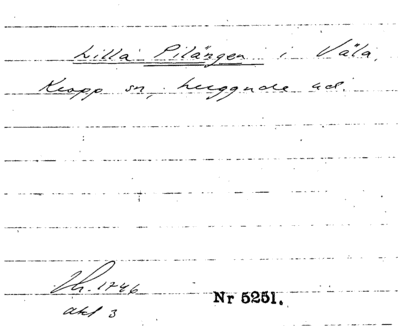 Lilla Pilängen i Väla,
Kropp sn, Luggude hd.
Lh. 1746
akt 3
Nr 5251.